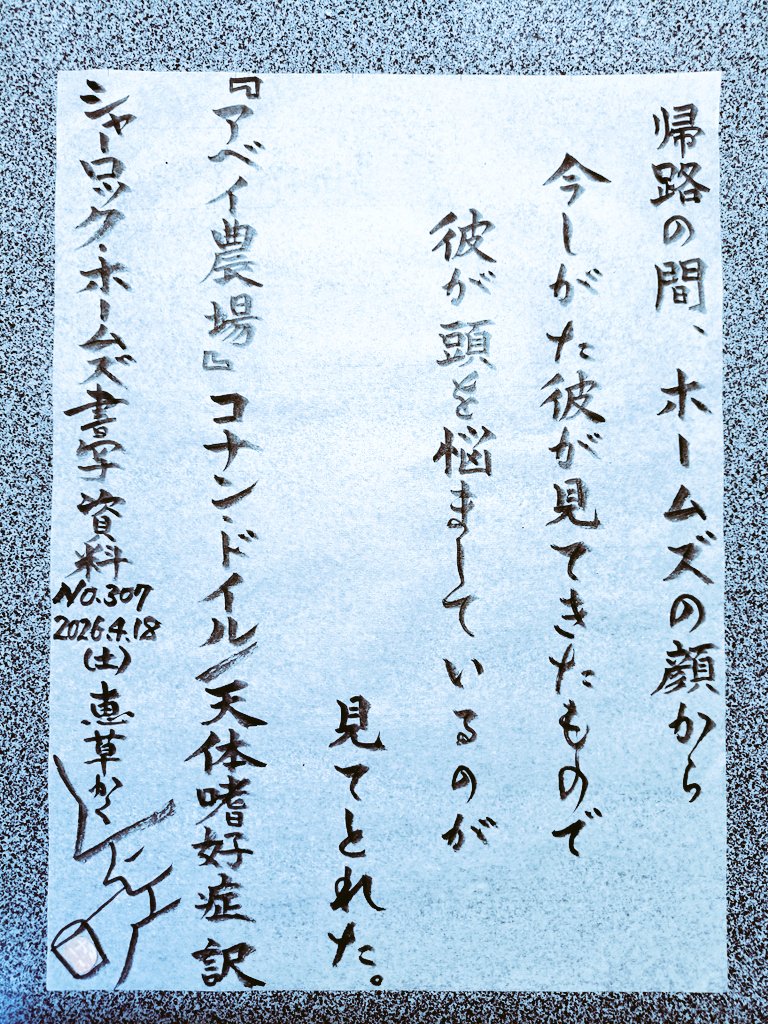 帰路の間、ホームズの顔から
今しがた彼が見てきたもので
彼が頭を悩ましているのが
見てとれた。
『アベイ農場』コナン・ドイル/天体嗜好症 訳
シャーロック・ホームズ書字資料
No.307
2026.4.18
(土)
恵草かく